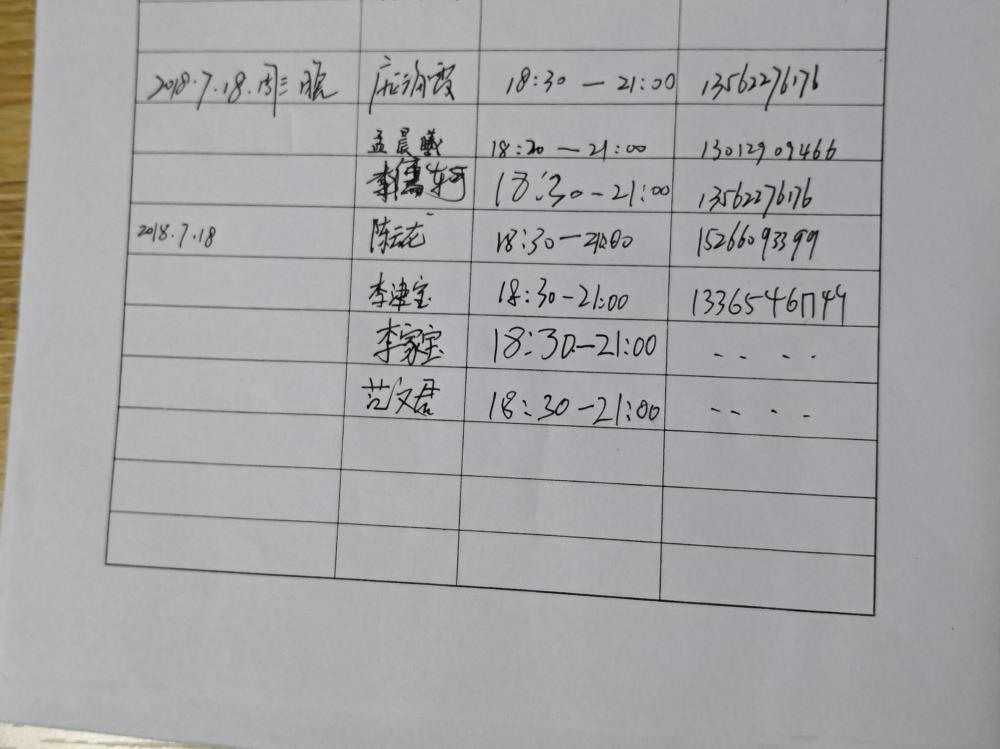 2018.7.18.周三晚 18:30 — 21:00 13562276176
孟晨曦 18:20 — 21:00 13012909466
李儒轲 18:30-21:00 13562276176
2018.7.18 陈云龙 18:30-21:00 15266093399
李津宝 18:30-21:00 13365461749
李家宝 18:30-21:00 ....
范文君 18:30-21:00 ....